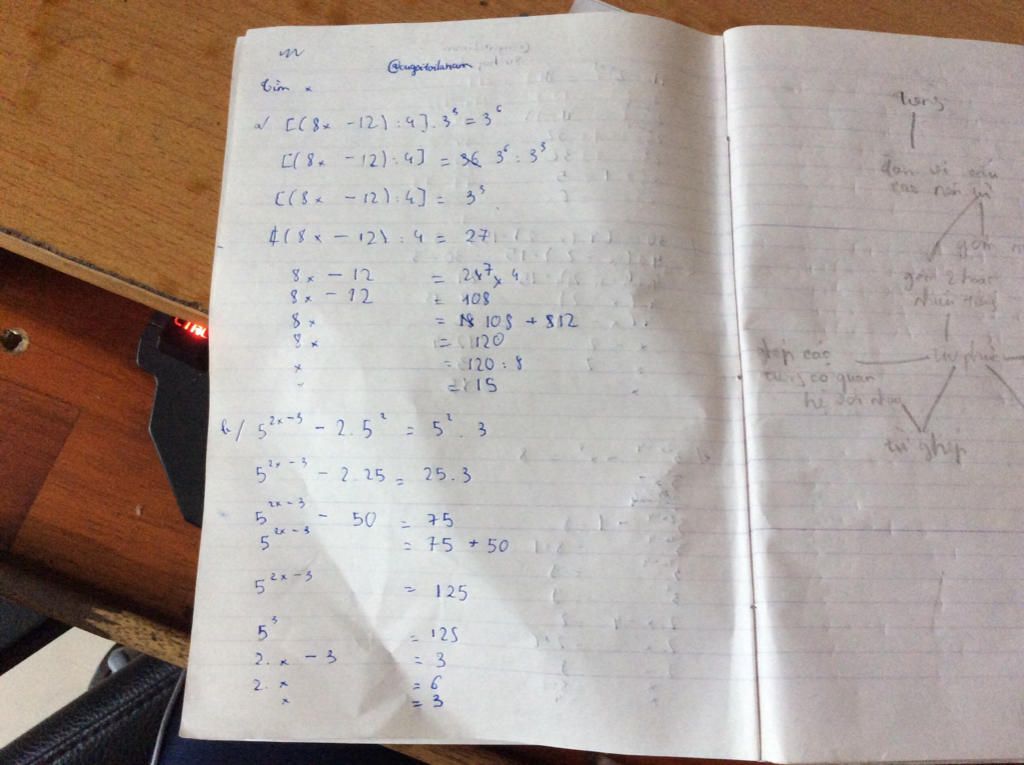 @cugoitoilanam
Tìm x
a/ [(8x - 12) : 4] . 3³ = 3⁶
[(8x - 12) : 4] = 3⁶ : 3³
[(8x - 12) : 4] = 3³
(8x - 12) : 4 = 27
8x - 12 = 27 x 4
8x - 12 = 108
8x = 108 + 12
8x = 120
x = 120 : 8
= 15
b/ 5²ˣ⁻³ - 2.5² = 5² . 3
5²ˣ⁻³ - 2.25 = 25.3
5²ˣ⁻³ - 50 = 75
5²ˣ⁻³ = 75 + 50
5²ˣ⁻³ = 125
5³ = 125
2.x - 3 = 3
2.x = 6
x = 3
tiếng
đơn vị cấu
tạo nên từ
gồm 2 hoặc
nhiều tiếng
từ phức
ghép các
tiếng có quan
hệ với nhau
từ ghép